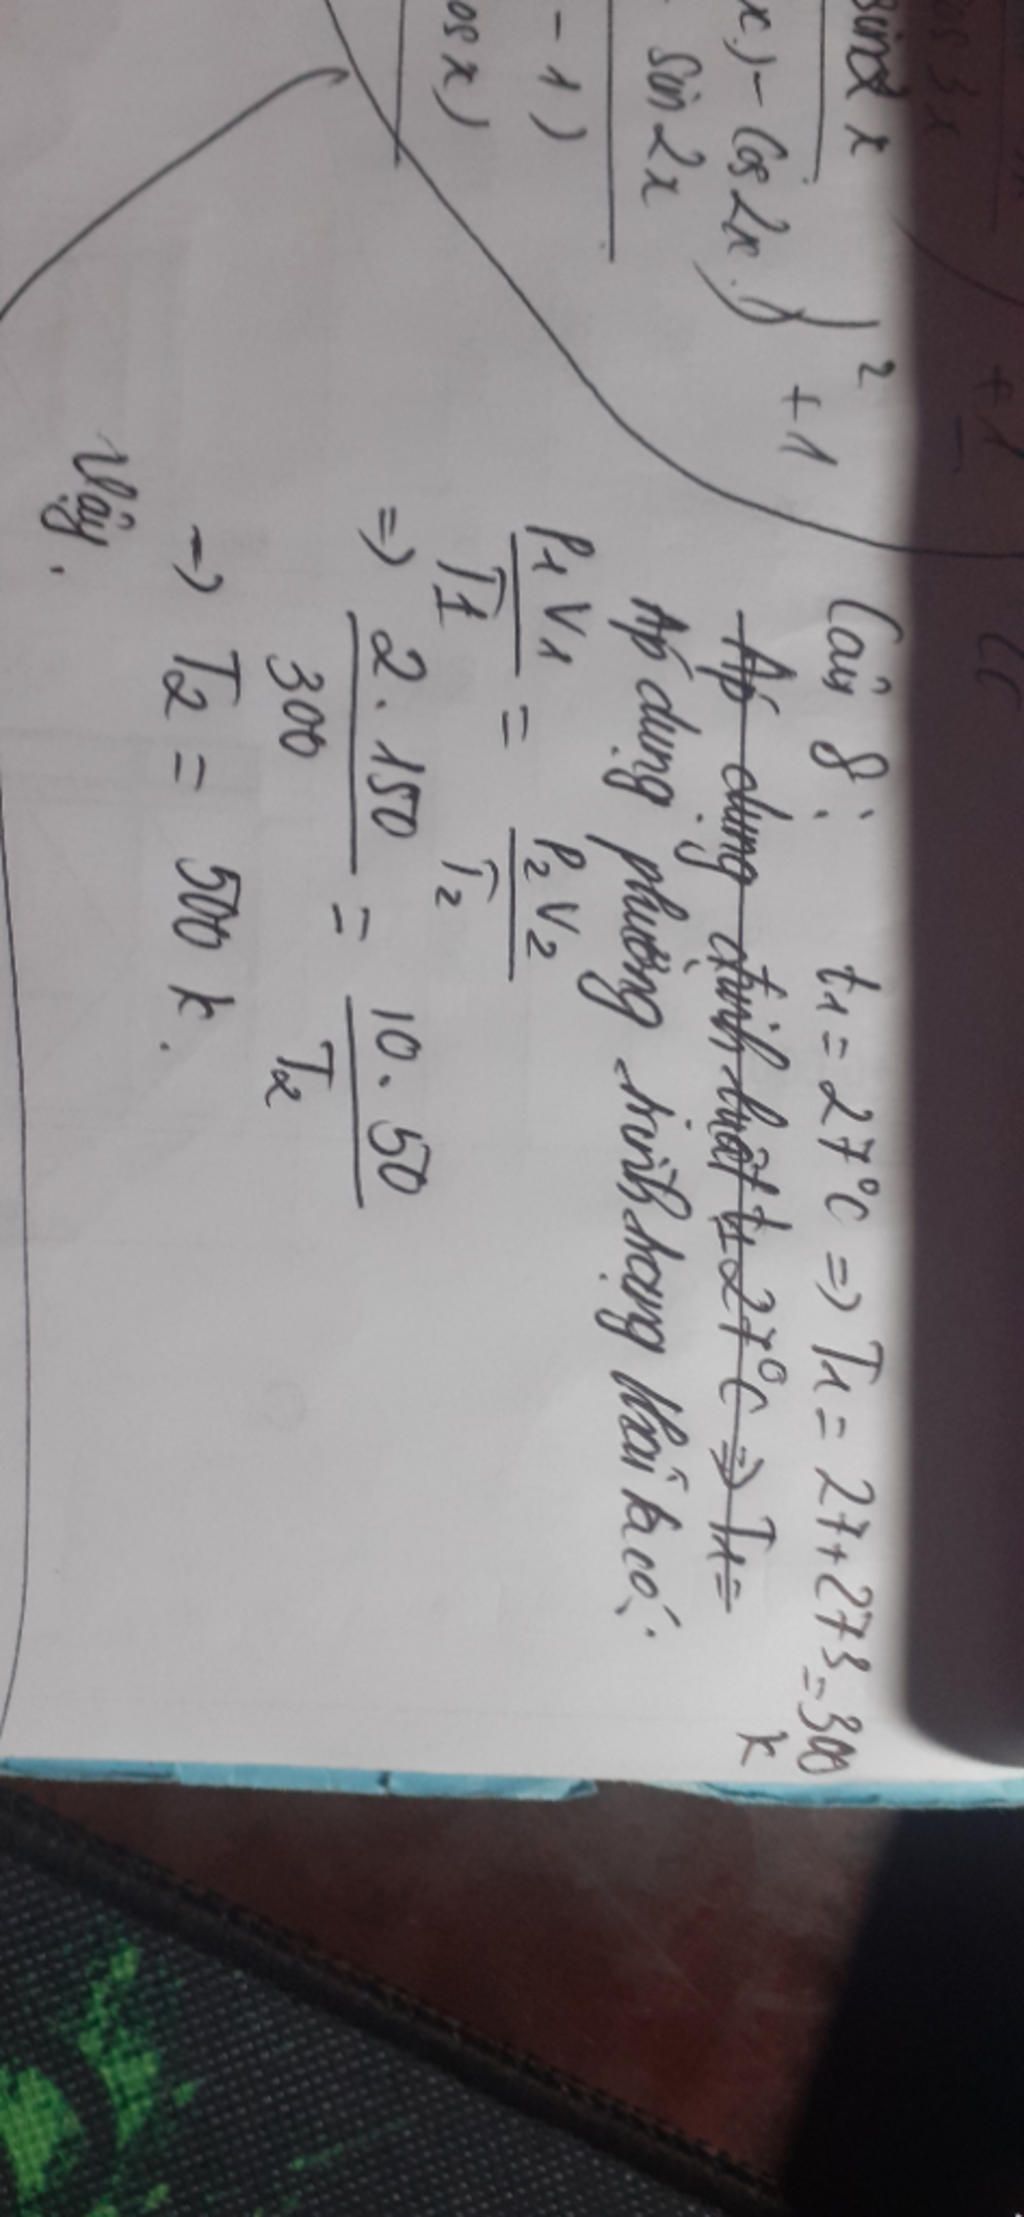 sin2x
x) - cos2x.)}² + 1
sin 2x
- 1)
os x)
Câu 8: t₁ = 27°C => T₁ = 27 + 273 = 300 K
Áp dụng định luật t₁ 27°C => T₁ =
Áp dụng phương trình trạng thái ta có:
P₁V₁ / T₁ = P₂V₂ / T₂
=> 2 . 150 / 300 = 10 . 50 / T₂
-> T₂ = 500 K.
Vậy.